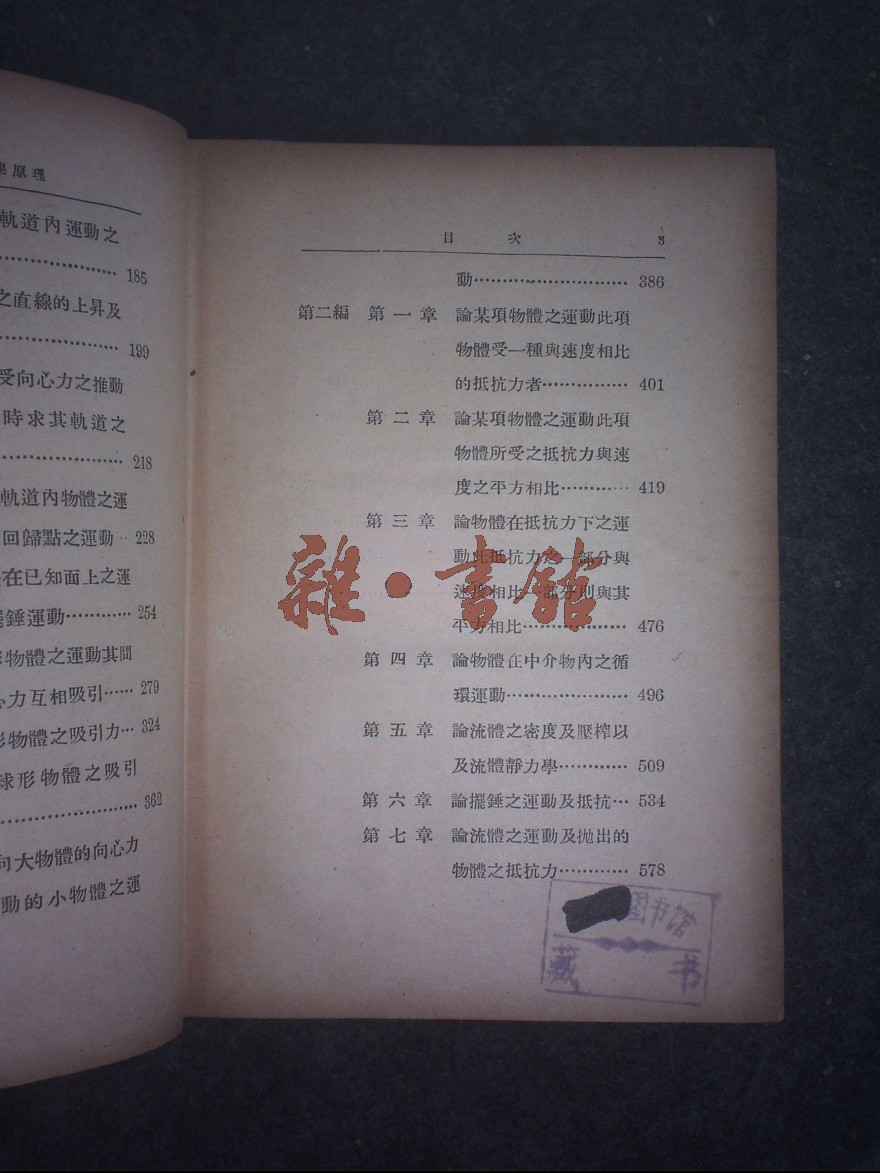 學原理
軌道內運動之
…………………… 185
之直線的上昇及
…………………… 199
受向心力之推動
時求其軌道之
…………………… 218
軌道內物體之運
回歸點之運動‥ 228
在已知面上之運
擺錘運動………… 254
物體之運動其間
心力互相吸引…… 279
形物體之吸引力… 324
球形物體之吸引
…………………… 362
向大物體的向心力
動的小物體之運
目 次 5
動………………………… 386
第二編 第一章 論某項物體之運動此項
物體受一種與速度相比
的抵抗力者…………… 401
第二章 論某項物體之運動此項
物體所受之抵抗力與速
度之平方相比………… 419
第三章 論物體在抵抗力下之運
動此抵抗力之一部分與
速度相比一部分則與其
平方相比……………… 476
第四章 論物體在中介物內之循
環運動………………… 496
第五章 論流體之密度及壓榨以
及流體靜力學………… 509
第六章 論擺錘之運動及抵抗… 534
第七章 論流體之運動及拋出的
物體之抵抗力………… 578
雜·書館
图书馆
藏 书